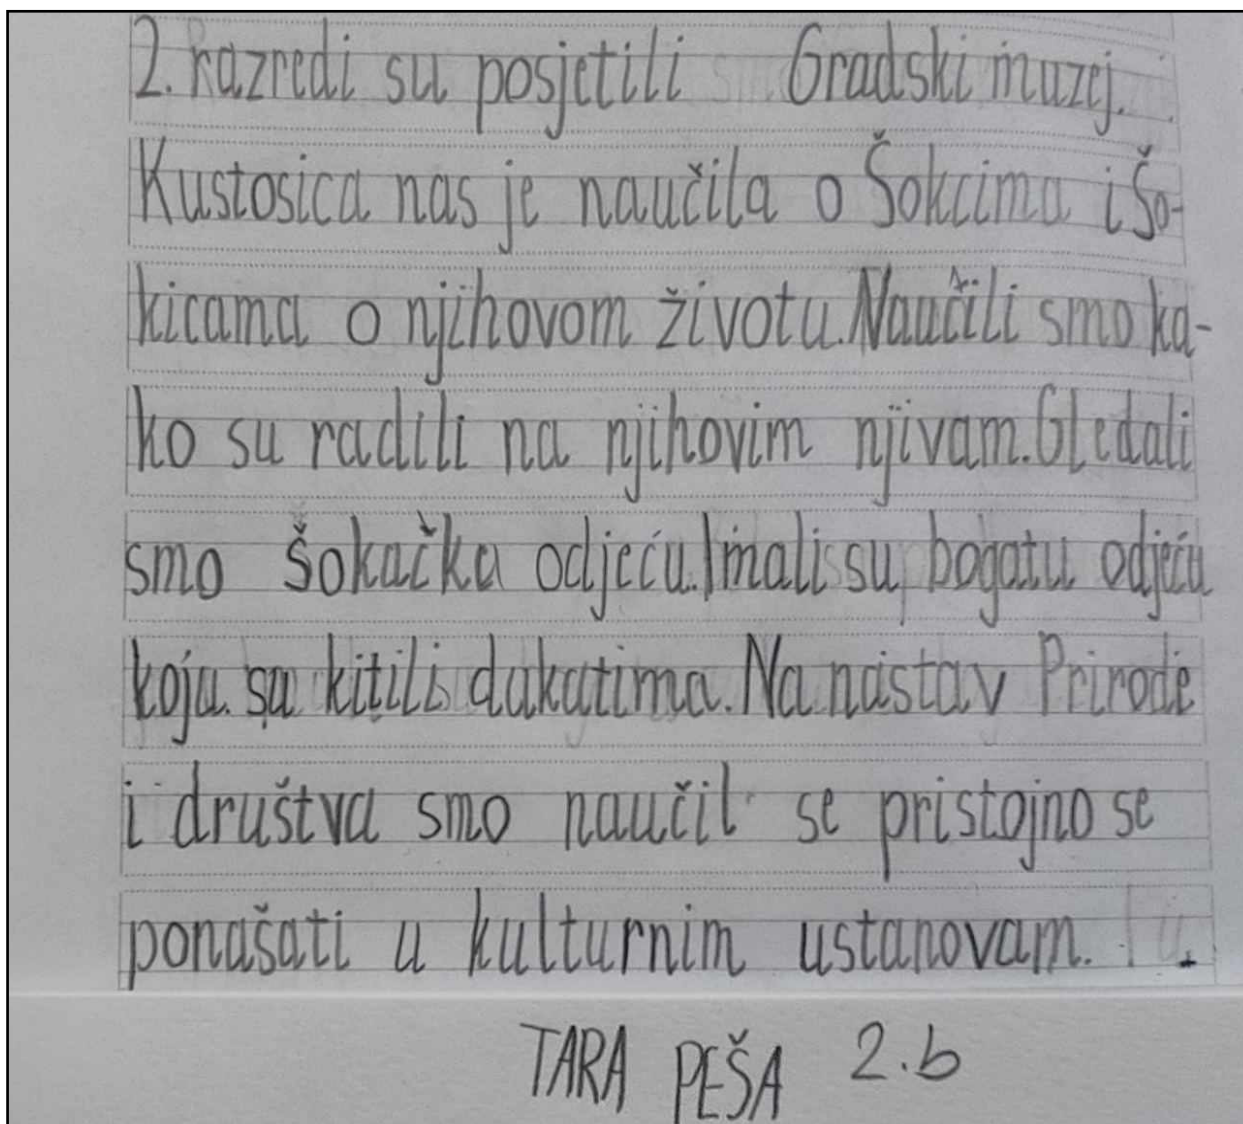 2. razredi su posjetili Gradski muzej.
Kustosica nas je naučila o Šokcima i Šo-
kicama o njihovom životu. Naučili smo ka-
ko su radili na njihovim njivam. Gledali
smo Šokačka odjeću. Imali su bogatu odjeću
koju su kitili dukatima. Na nastav Prirode
i društva smo naučil se pristojno se
ponašati u kulturnim ustanovam.
TARA PEŠA 2.b